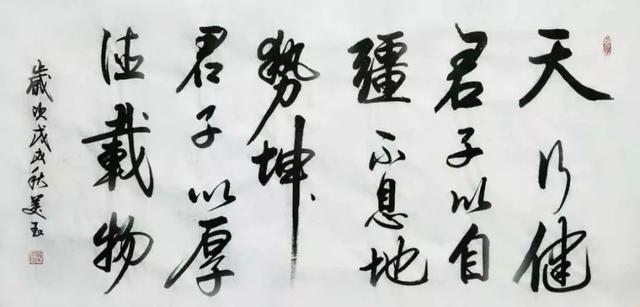 天行健
君子以自
彊不息地
勢坤
君子以厚
德載物
歲次戊戌秋美玉